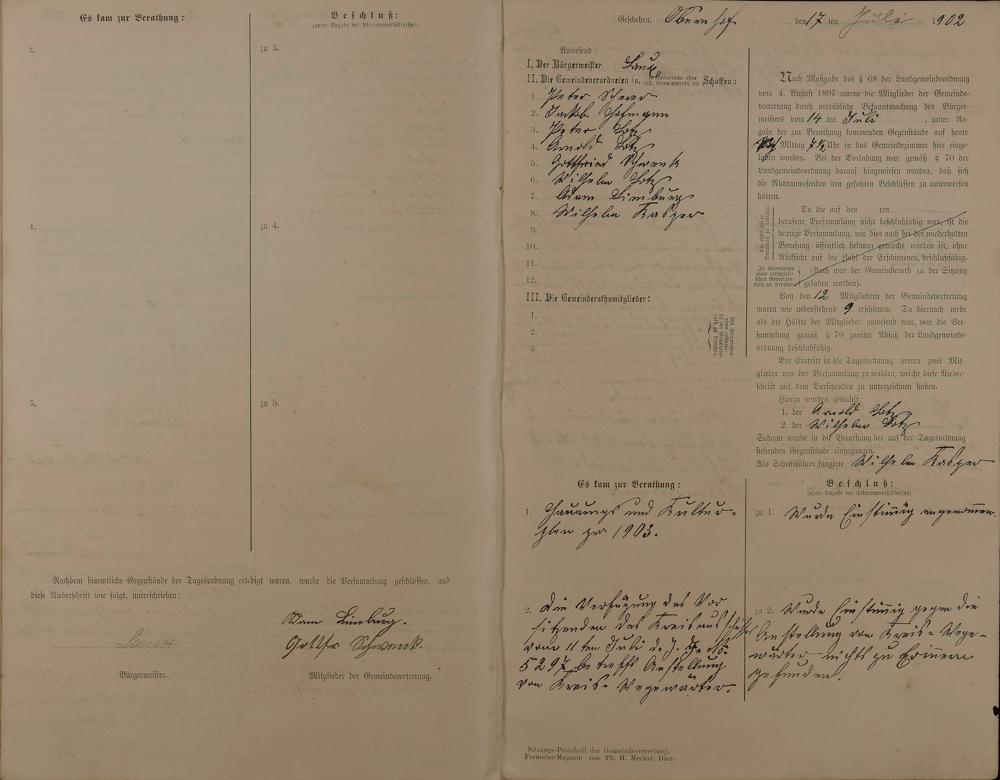 Es kam zur Berathung:
Beschluß:
(unter Angabe des Stimmenverhältnisses.)
3.
zu 3.
4.
zu 4.
5.
zu 5.
Nachdem sämmtliche Gegenstände der Tagesordnung erledigt waren, wurde die Versammlung geschlossen, und
diese Niederschrift wie folgt, unterschrieben:
Adam Limburg.
Laux
Gottfr Schwenk.
Bürgermeister.
Mitglieder der Gemeindevertretung.
Geschehen, Obernhof, den 17 ten Juli 1902
Anwesend:
I. Der Bürgermeister Laux
II. Die Gemeindeverordneten (u. in Gemeinden ohne Schöffen):
1. Peter
2. Jakob Hofmann
3. Peter Lotz
4. Arnold Lotz
5. Gottfried Schwenk
6. Wilhelm Lotz
7. Adam Limburg
8. Wilhelm Kasper
9.
10.
11.
12.
III. Die Gemeinderathsmitglieder:
1.
2.
3
Nach Maßgabe des § 68 der Landgemeindeordnung
vom 4. August 1897 waren die Mitglieder der Gemeinde-
vertretung durch ortsübliche Bekanntmachung des Bürger-
meisters vom 14 ten Juli, unter An-
gabe der zur Berathung kommenden Gegenstände auf heute
Mittag 7½ Uhr in das Gemeindezimmer hier einge-
laden worden. Bei der Vorladung war gemäß § 70 der
Landgemeindeordnung darauf hingewiesen worden, daß sich
die Nichtanwesenden den gefaßten Beschlüssen zu unterwerfen
hätten.
Da die auf den ten
berufene Versammlung nicht beschlußfähig war, ist die
heutige Versammlung, wie dies auch bei der wiederholten
Berufung öffentlich bekannt gemacht worden ist, ohne
Rücksicht auf die Zahl der Erschienenen, beschlußfähig.
In Gemeinden
ohne collegiali-
schen Gemeinde-
rath zu streichen
(Auch war der Gemeinderath zu der Sitzung
geladen worden).
Von den 12 Mitgliedern der Gemeindevertretung
waren wie nebenstehend 9 erschienen. Da hiernach mehr
als die Hälfte der Mitglieder anwesend war, war die Ver-
sammlung gemäß § 70 zweiter Absatz der Landgemeinde-
ordnung beschlußfähig.
Vor Eintritt in die Tagesordnung waren zwei Mit-
glieder von der Versammlung zu wählen, welche diese Nieder-
schrift mit dem Vorsitzenden zu unterzeichnen haben.
Hierzu wurden gewählt:
1. der Arnold Lotz
2. der Wilhelm Lotz
Sodann wurde in die Berathung der auf der Tagesordnung
stehenden Gegenstände eingegangen.
Als Schriftführer fungirte Wilhelm Kasper
Es kam zur Berathung:
Beschluß:
(unter Angabe des Stimmenverhältnisses)
1. Hauungs und Kultur-
plan pro 1903.
zu 1. Wurde Einstimmig angenommen.
2. Die Verfügung des Vor
sitzenden des Kreisausschußes
vom 11 ten Juli d. J.
5297 betrefft Anstellung
von Kreis-Wegewärter.
zu 2. Wurde Einstimmig gegen die
Anstellung von Kreis-Wege-
wärter nichts zu Erinnern
gefunden.
Sitzungs-Protokoll der Gemeindevertretung.
Formular-Magazin von Ph. H. Meckel, Diez.